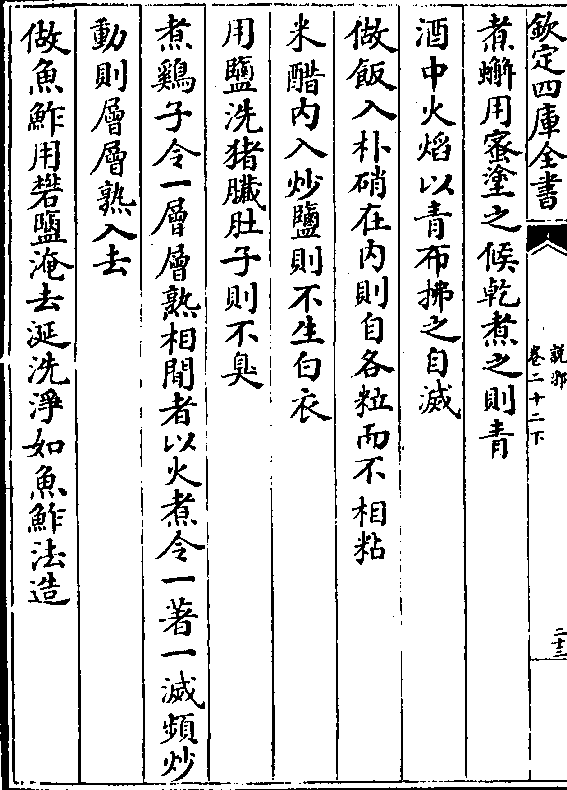 欽定四庫全書
說郛
卷二十二下
二十三
煮蠏用蜜塗之候乾煮之則青
酒中火熖以青布拂之自滅
做飯入朴硝在内則自各粒而不相粘
米醋内入炒鹽則不生白衣
用鹽洗猪臟肚子則不臭
煮鷄子令一層層熟相間者以火煮令一著一滅頻炒
動則層層熟入去
做魚鮓用礬鹽淹去涎洗淨如魚鮓法造